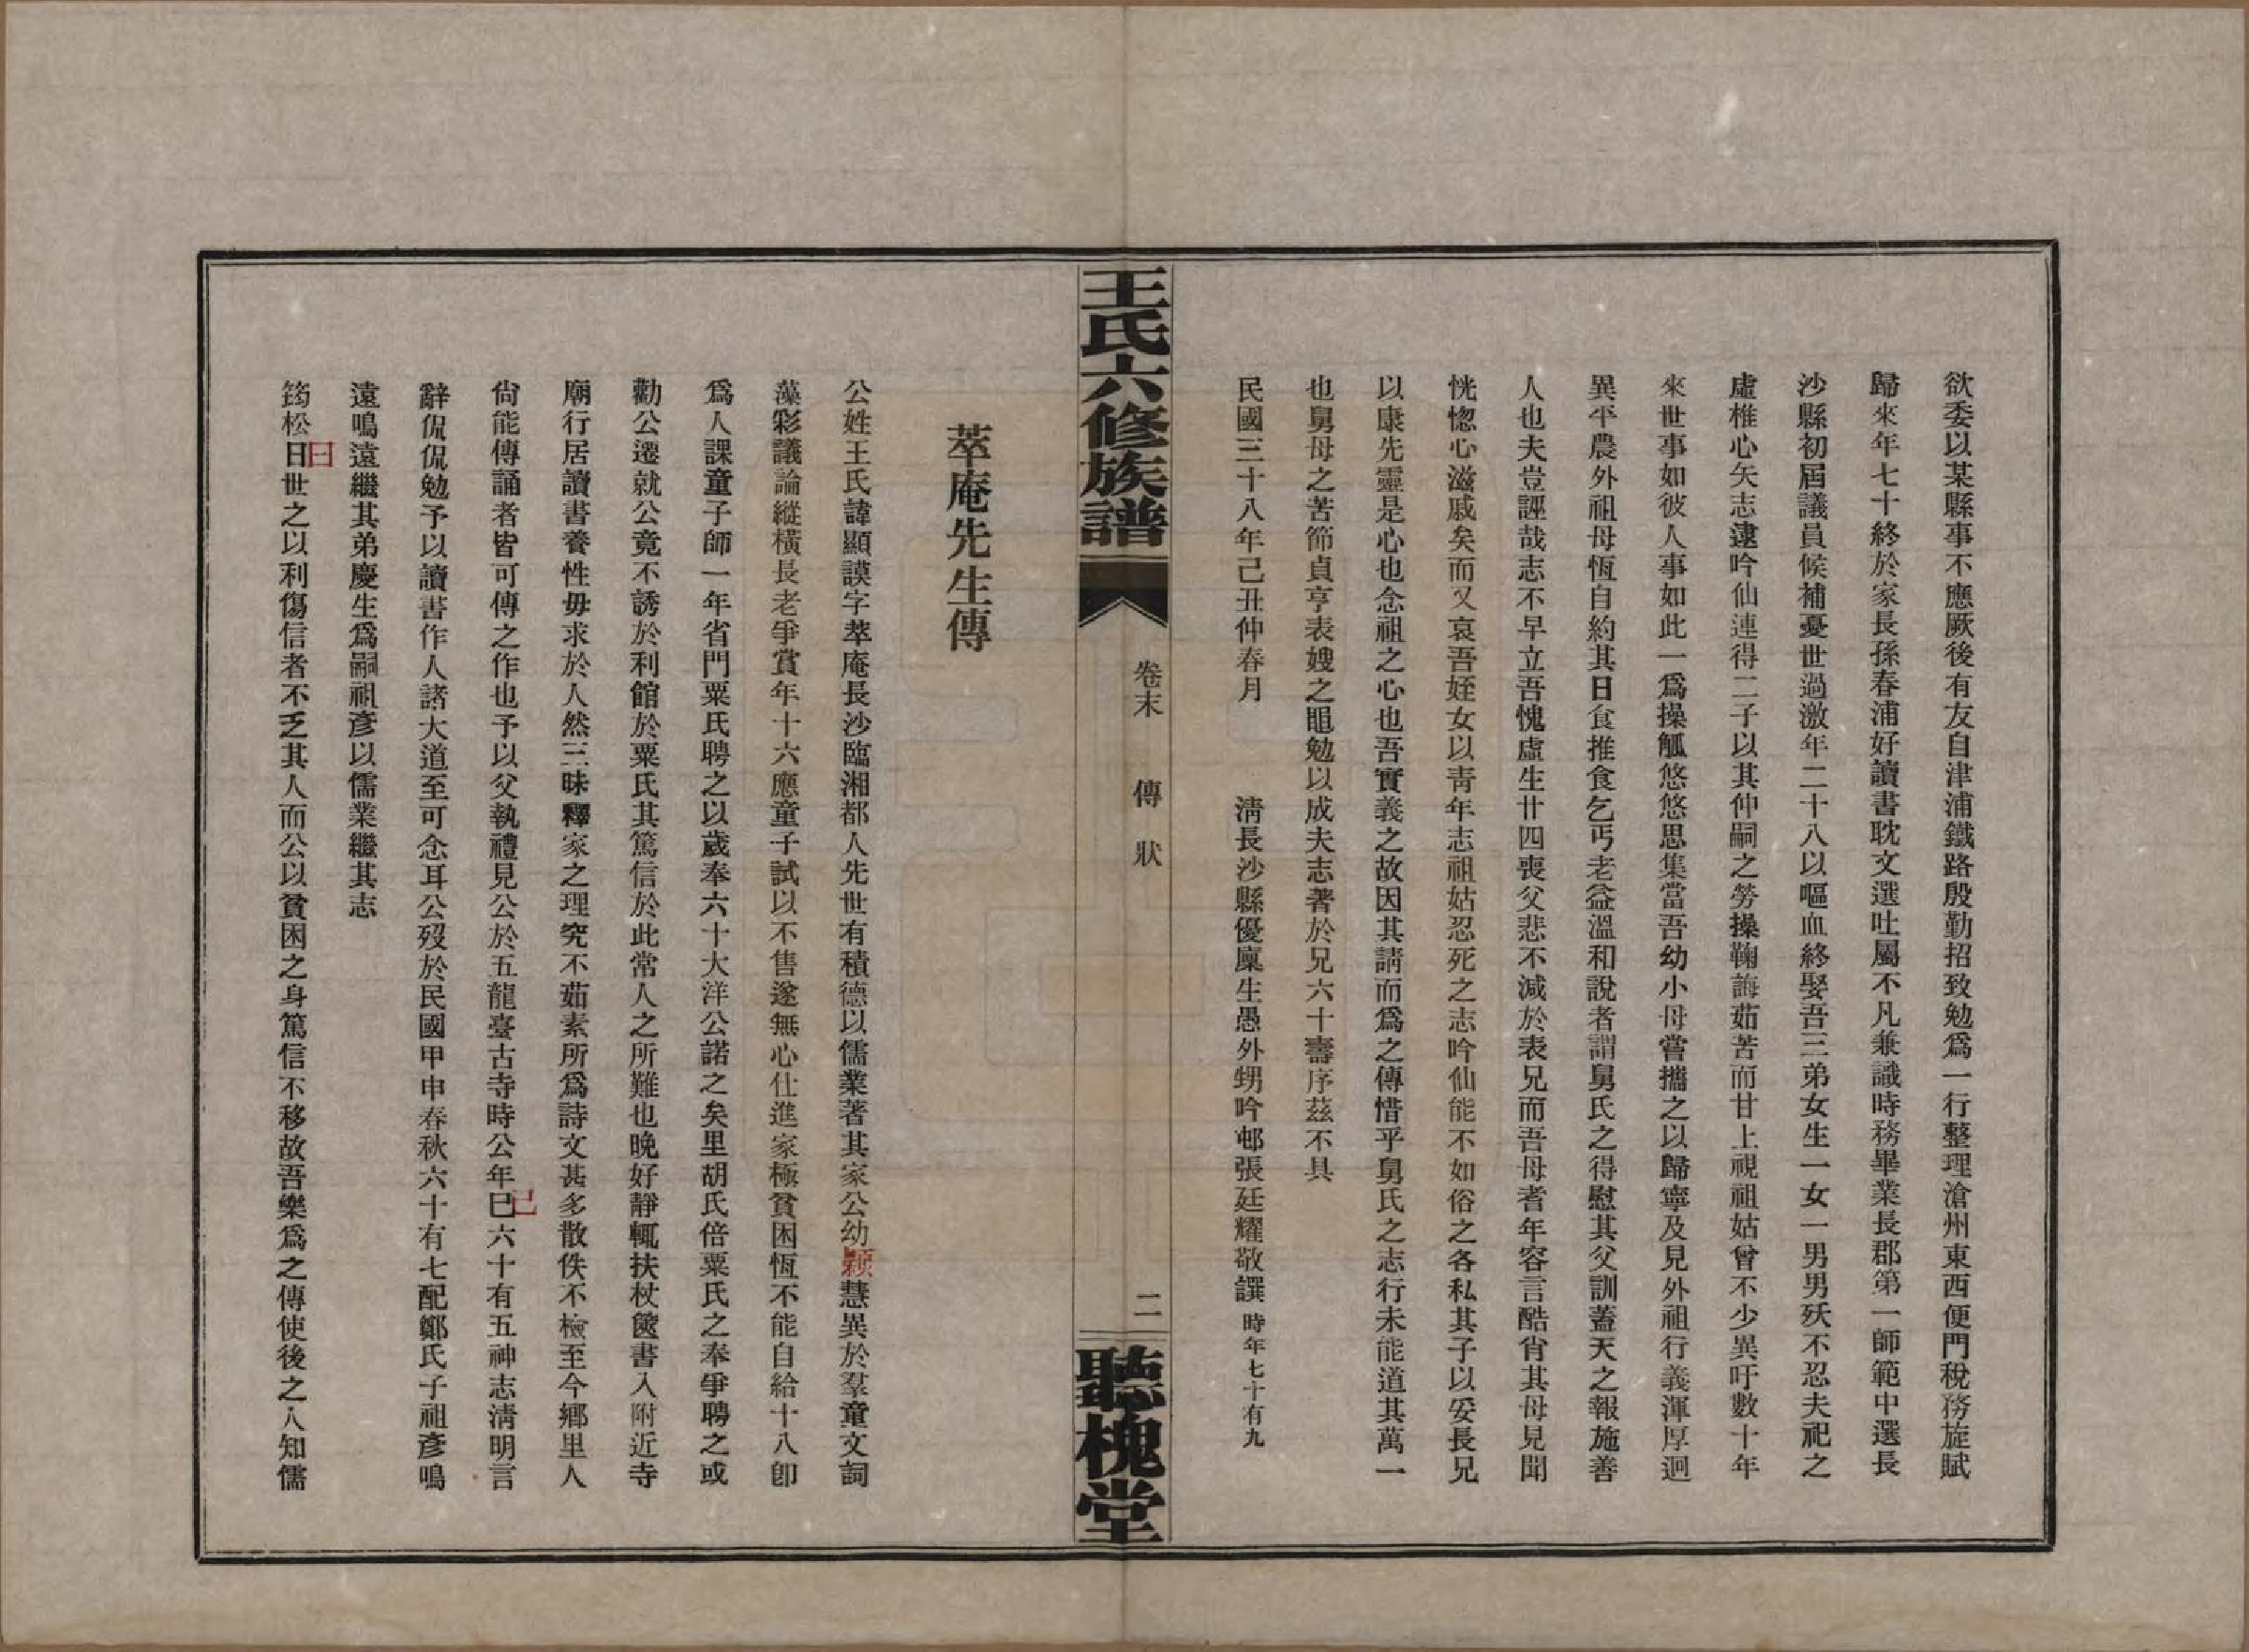 欲委以某縣事不應厥後有友自津浦鐵路殷勤招致勉爲一行整理滄州東西便門稅務旋賦
歸來年七十終於家長孫春浦好讀書耽文選吐屬不凡兼識時務畢業長郡第一師範中選長
沙縣初屆議員候補憂世過激年二十八以嘔血終娶吾三弟女生一女一男男殀不忍夫祀之
虛椎心矢志逮吟仙連得二子以其仲嗣之勞操鞠誨茹苦而甘上視祖姑曾不少異吁數十年
來世事如彼人事如此一爲操觚悠悠思集當吾幼小母嘗攜之以歸寧及見外祖行義渾厚迥
異平農外祖母恆自約其日食推食乞丐老益溫和說者謂舅氏之得慰其父訓蓋天之報施善
人也夫豈誣哉志不早立吾愧虛生廿四喪父悲不減於表兄而吾母耆年容言酷肖其母見聞
恍惚心滋戚矣而又哀吾姪女以靑年志祖姑忍死之志吟仙能不如俗之各私其子以妥長兄
以康先靈是心也念祖之心也吾實義之故因其請而爲之傳惜乎舅氏之志行未能道其萬一
也舅母之苦節貞亨表嫂之黽勉以成夫志著於兄六十壽序茲不具
民國三十八年己丑仲春月　　　清長沙縣優廩生愚外甥吟邨張廷耀敬譔時年七十有九
王氏六修族譜　卷末　傳狀　二　聽槐堂
萃庵先生傳
公姓王氏諱顯謨字萃庵長沙臨湘都人先世有積德以儒業著其家公幼穎慧異於羣童文詞
藻彩議論縱橫長老爭賞年十六應童子試以不售遂無心仕進家極貧困恆不能自給十八卽
爲人課童子師一年省門粟氏聘之以歲奉六十大洋公諾之矣里胡氏倍粟氏之奉爭聘之或
勸公遷就公竟不誘於利館於粟氏其篤信於此常人之所難也晚好靜輒扶杖篋書入附近寺
廟行居讀書養性毋求於人然三昧釋家之理究不茹素所爲詩文甚多散佚不檢至今鄉里人
尙能傳誦者皆可傳之作也予以父執禮見公於五龍臺古寺時公年巳已六十有五神志淸明言
辭侃侃勉予以讀書作人諸大道至可念耳公歿於民國甲申春秋六十有七配鄭氏子祖彥鳴
遠鳴遠繼其弟慶生爲嗣祖彥以儒業繼其志
筠松日曰世之以利傷信者不乏其人而公以貧困之身篤信不移故吾樂爲之傳使後之人知儒